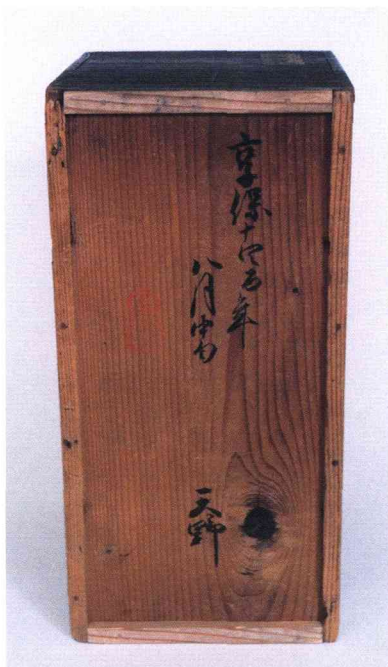 享保十四酉年
八月中旬
天野